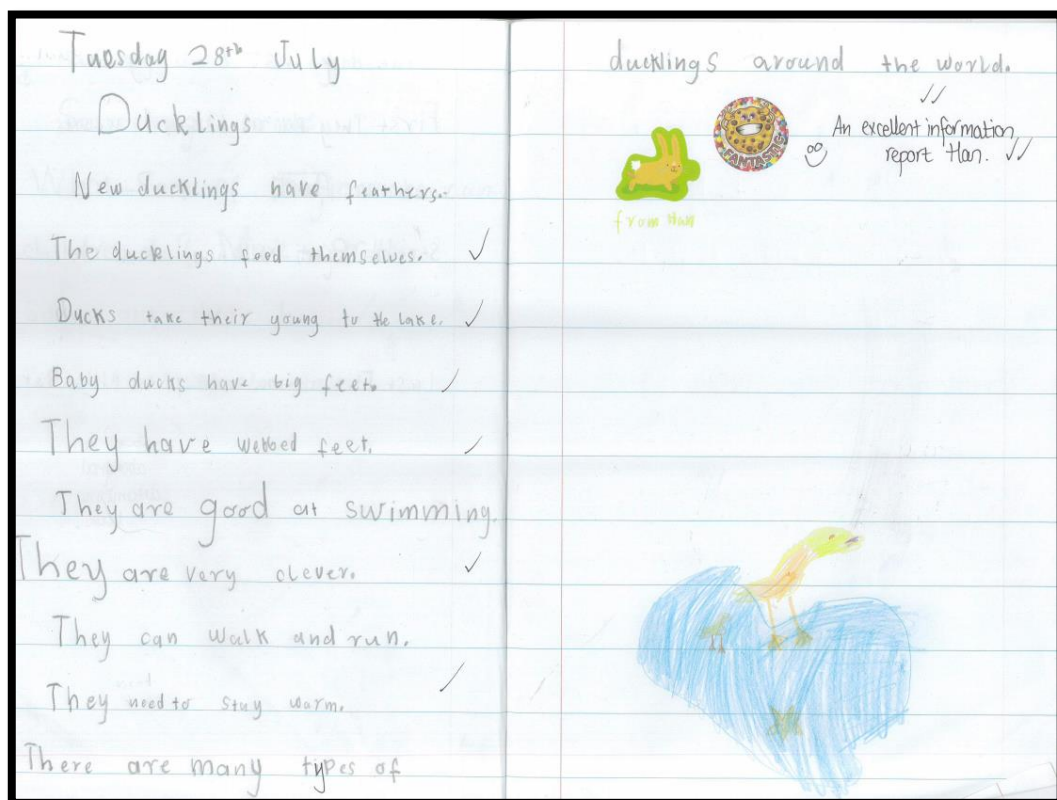 Tuesday 28th July
Ducklings
New ducklings have feathers.
The ducklings feed themselves.
Ducks take their young to the lake.
Baby ducks have big feet.
They have webbed feet.
They are good at swimming.
They are very clever.
They can walk and run.
They need to stay warm.
There are many types of
ducklings around the world.
FANTASTIC
An excellent information
report Han.
from Han